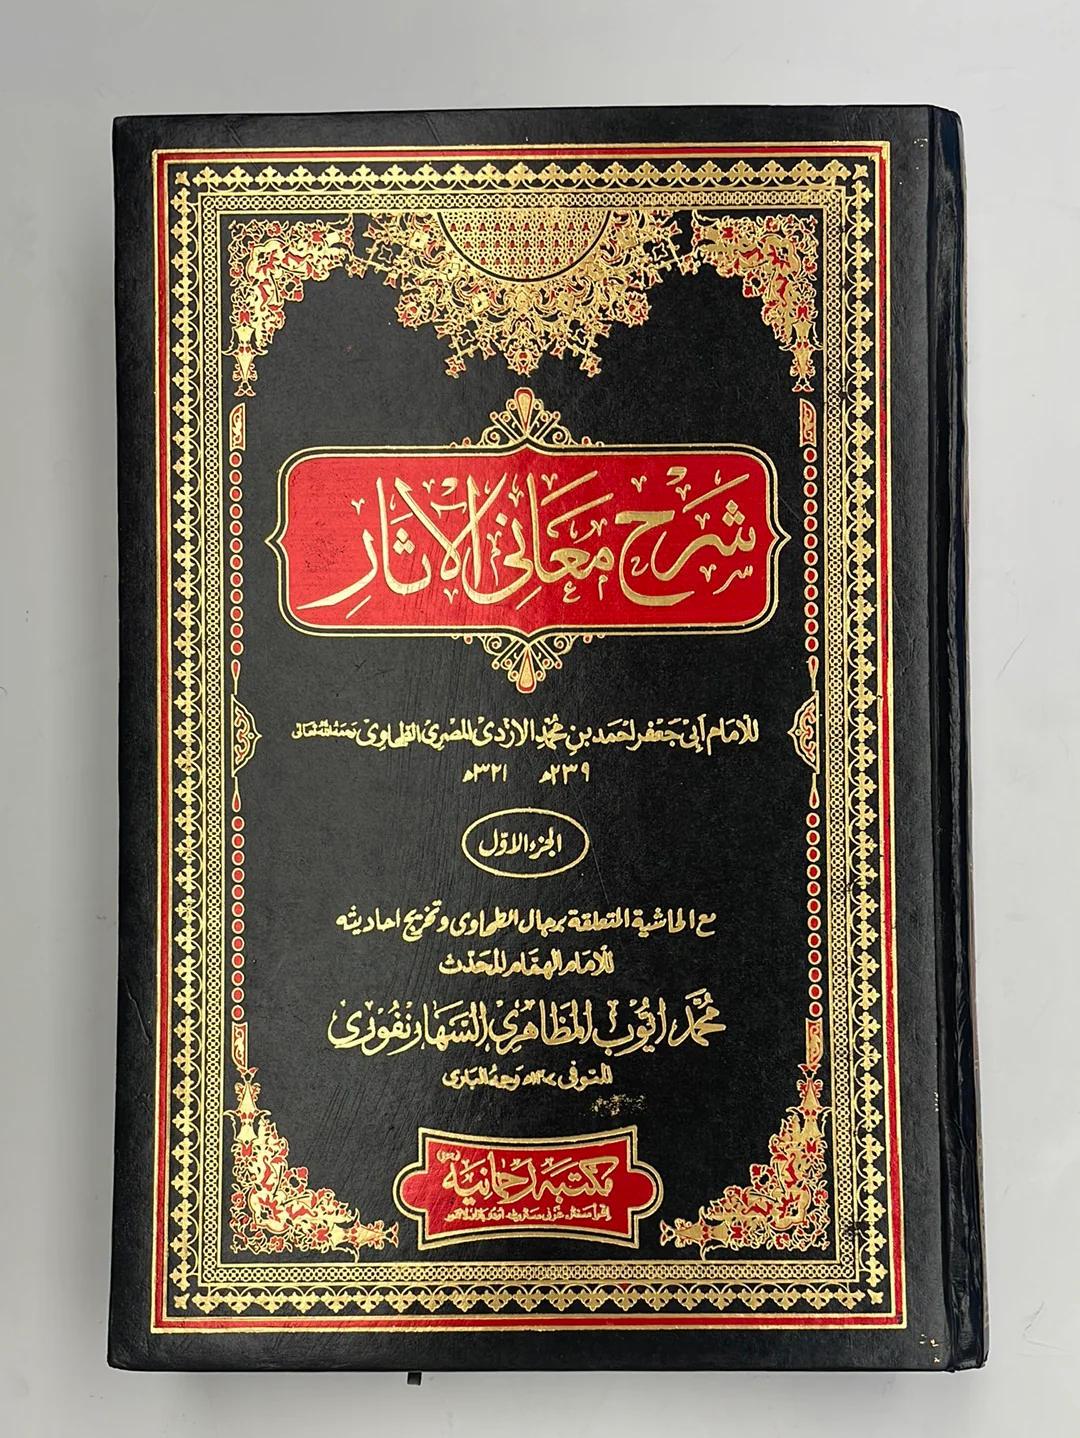 شرح معاني الآثار
للامام أبي جعفر احمد بن محمد الازدي المصري الطحاوي رحمه الله تعالى
٢٣٩ه ٣٢١ه
الجزء الاول
مع الحاشية المتعلقة برجال الطحاوى وتخريج احاديثه
للامام الهمام المحدث
محمد ايوب المظاهرى السهارنفورى
المتوفى رحمه البارى
مكتبه رحمانيه
اقرأ سنٹر غزنی سٹریٹ اردو بازار لاہور